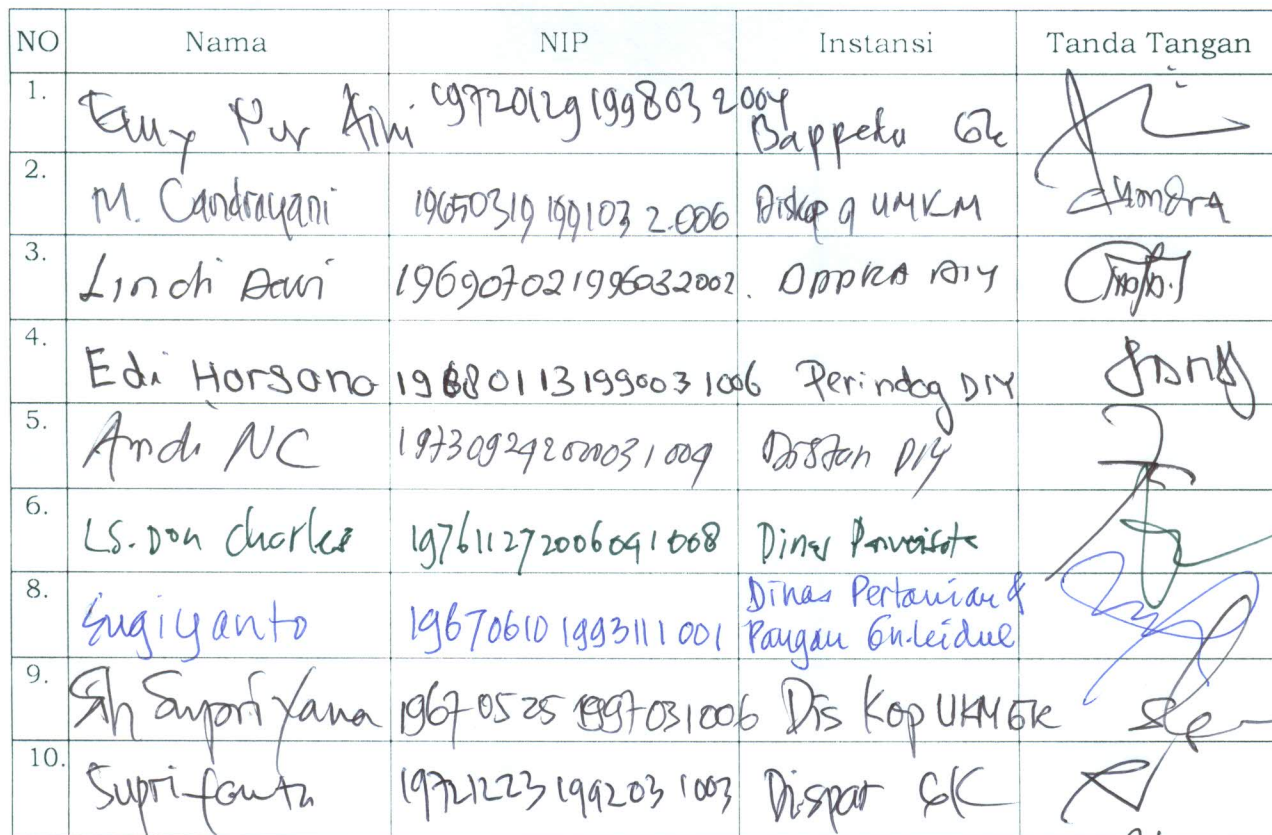 NO Nama NIP Instansi Tanda Tangan
1. Emy Nur Aini 197201291998032004 Bappeda GK
2. M. Candrayani 19650319 199103 2.006 Diskop q UMKM
3. Lindi Dewi 196907021996032002. DPPKA DIY
4. Edi Harsono 196801131990031006 Perindag DIY
5. Andi NC 197309242000031004 Distan DIY
6. LS. Don Charles 197611272006041008 Dinas Pariwisata
8. Sugiyanto 19670610 1993111 001 Dinas Pertanian &
Pangan Gn.kidul
9. Supriyana 1967 05 25 1997031006 Dis Kop UKM GK
10. Supriyanta 19721223 199203 1003 Dispar GK